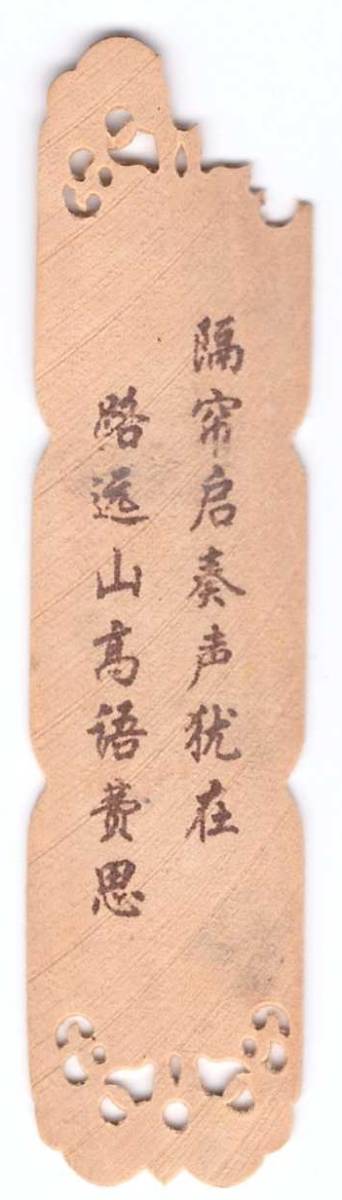 隔帘启奏声犹在
路远山高语费思